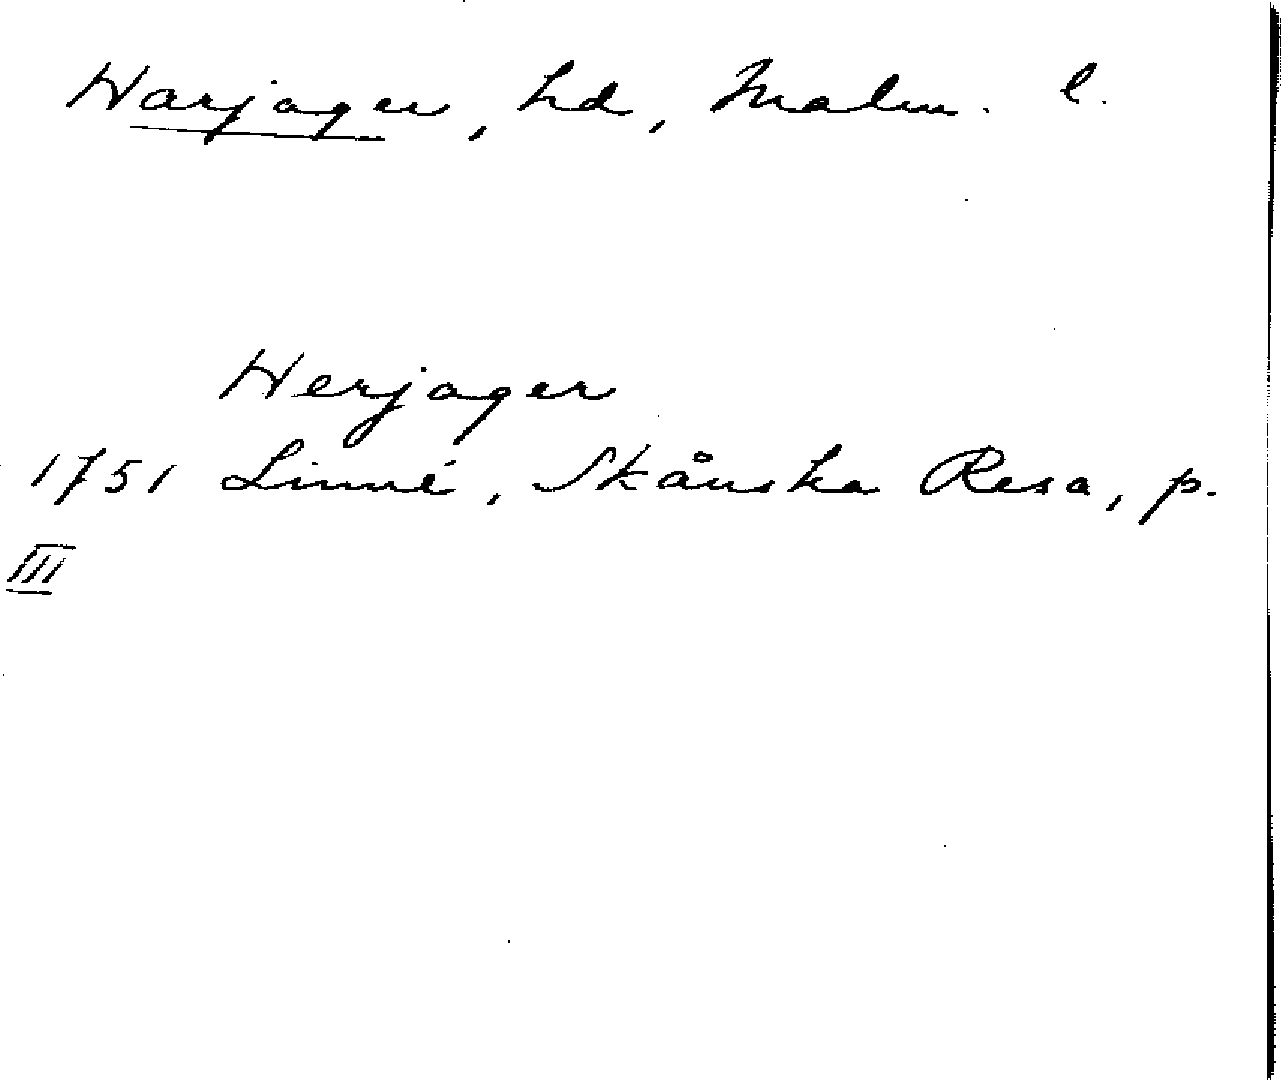 Harjager, hd, Malm. l.
Herjager
1751 Linné, Skånska Resa, p.
III